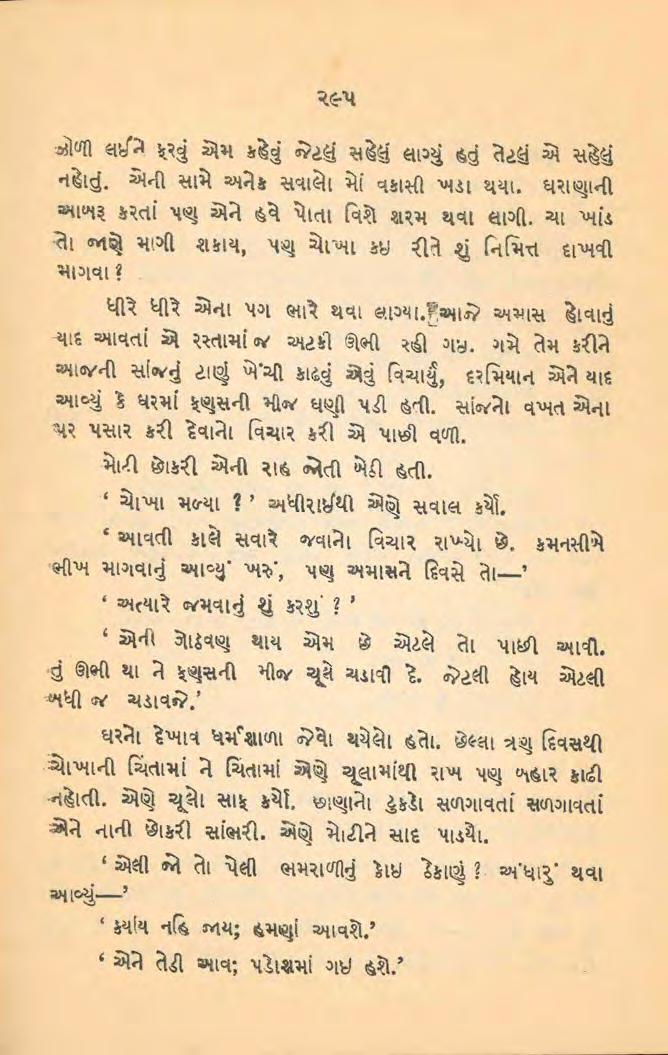 ૨૯૫
ઝોળી લઈને ફરવું એમ કહેવું જેટલું સહેલું લાગ્યું હતું તેટલું એ સહેલું
નહોતું. એની સામે અનેક સવાલો મોં વકાસી ખડા થયા. ઘરાણાની
આબરૂ કરતાં પણ એને હવે પોતા વિશે શરમ થવા લાગી. ચા ખાંડ
તો જાણે માગી શકાય, પણ ચોખા કઇ રીતે શું નિમિત્ત દાખવી
માગવા ?
ધીરે ધીરે એના પગ ભારે થવા લાગ્યા. આજે અમાસ હોવાનું
યાદ આવતાં એ રસ્તામાં જ અટકી ઊભી રહી ગઇ. ગમે તેમ કરીને
આજની સાંજનું ટાણું ખેંચી કાઢવું એવું વિચાર્યું, દરમિયાન એને યાદ
આવ્યું કે ઘરમાં ફણસની મીજ ઘણી પડી હતી. સાંજનો વખત એના
પર પસાર કરી દેવાનો વિચાર કરી એ પાછી વળી.
મોટી છોકરી એની રાહ જોતી બેઠી હતી.
‘ ચોખા મળ્યા ? ’ અધીરાઈથી એણે સવાલ કર્યો.
‘ આવતી કાલે સવારે જવાનો વિચાર રાખ્યો છે. કમનસીબે
ભીખ માગવાનું આવ્યું ખરું, પણ અમાસને દિવસે તો—’
‘ અત્યારે જમવાનું શું કરશું ? ’
‘ એની ગોઠવણ થાય એમ છે એટલે તો પાછી આવી.
તું ઊભી થા ને ફણસની મીજ ચૂલે ચડાવી દે. જેટલી હોય એટલી
બધી જ ચડાવજે.’
ઘરનો દેખાવ ધર્મશાળા જેવો થયેલો હતો. છેલ્લા ત્રણ દિવસથી
ચોખાની ચિંતામાં ને ચિંતામાં એણે ચૂલામાંથી રાખ પણ બહાર કાઢી
નહોતી. એણે ચૂલો સાફ કર્યો. છાણાનો ટુકડો સળગાવતાં સળગાવતાં
એને નાની છોકરી સાંભરી. એણે મોટીને સાદ પાડ્યો.
‘ એલી જો તો પેલી ભમરાળીનું કોઇ ઠેકાણું ? અંધારું થવા
આવ્યું—’
‘ ક્યાંય નહિ જાય; હમણાં આવશે.’
‘ એને તેડી આવ; પડોશમાં ગઇ હશે.’